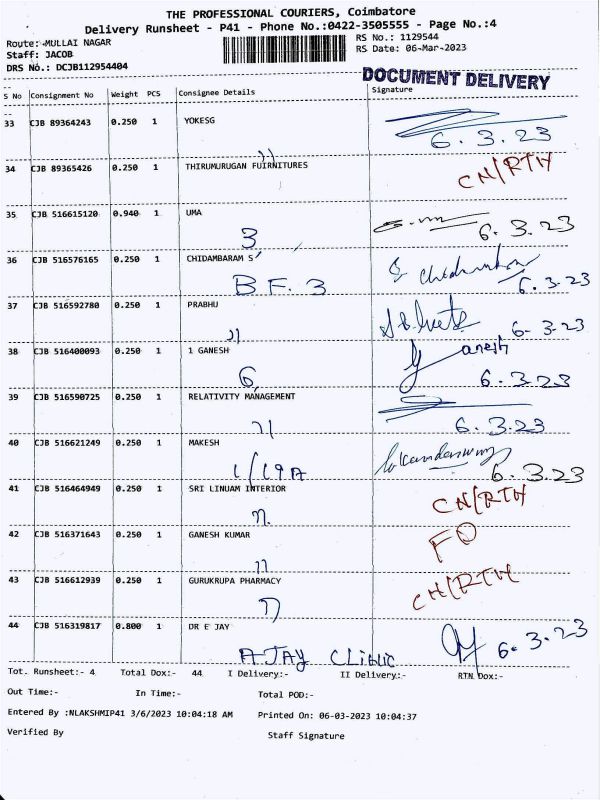 THE PROFESSIONAL COURIERS, Coimbatore
Delivery Runsheet - P41 - Phone No.:0422-3505555 - Page No.:4
Route:-MULLAI NAGAR RS No.: 1129544
Staff: JACOB RS Date: 06-Mar-2023
DRS No.: DCJB112954404
DOCUMENT DELIVERY
S No Consignment No Weight PCS Consignee Details Signature
33 CJB 89364243 0.250 1 YOKESG
6.3.23
34 CJB 89365426 0.250 1 THIRUMURUGAN FUIRNITURES CN/RTH
35 CJB 516615120 0.940 1 UMA
3 6.3.23
36 CJB 516576165 0.250 1 CHIDAMBARAM S
B F. 3 6.3.23
37 CJB 516592780 0.250 1 PRABHU
6-3.23
38 CJB 516400093 0.250 1 1 GANESH Ganesh
6 6.3.23
39 CJB 516590725 0.250 1 RELATIVITY MANAGEMENT
6.3.23
40 CJB 516621249 0.250 1 MAKESH
1/19A 6.3.23
41 CJB 516464949 0.250 1 SRI LINUAM INTERIOR CN/RTH
42 CJB 516371643 0.250 1 GANESH KUMAR FO
43 CJB 516612939 0.250 1 GURUKRUPA PHARMACY CN/RTH
44 CJB 516319817 0.800 1 DR E JAY
AJAY Clinic 6.3.23
Tot. Runsheet:- 4 Total Dox:- 44 I Delivery:- II Delivery:- RTN Dox:-
Out Time:- In Time:- Total POD:-
Entered By :NLAKSHMIP41 3/6/2023 10:04:18 AM Printed On: 06-03-2023 10:04:37
Verified By Staff Signature